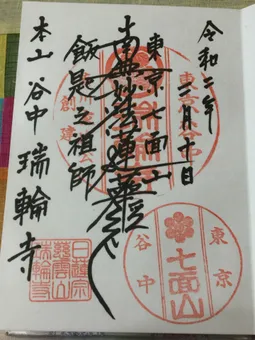 令和二年
二月十日
東京七面山
南無妙法蓮華経
飯匙之祖師
本山 谷中 瑞輪寺
東京
七面山
谷中
日蓮宗
慈雲山
瑞輪寺
創建